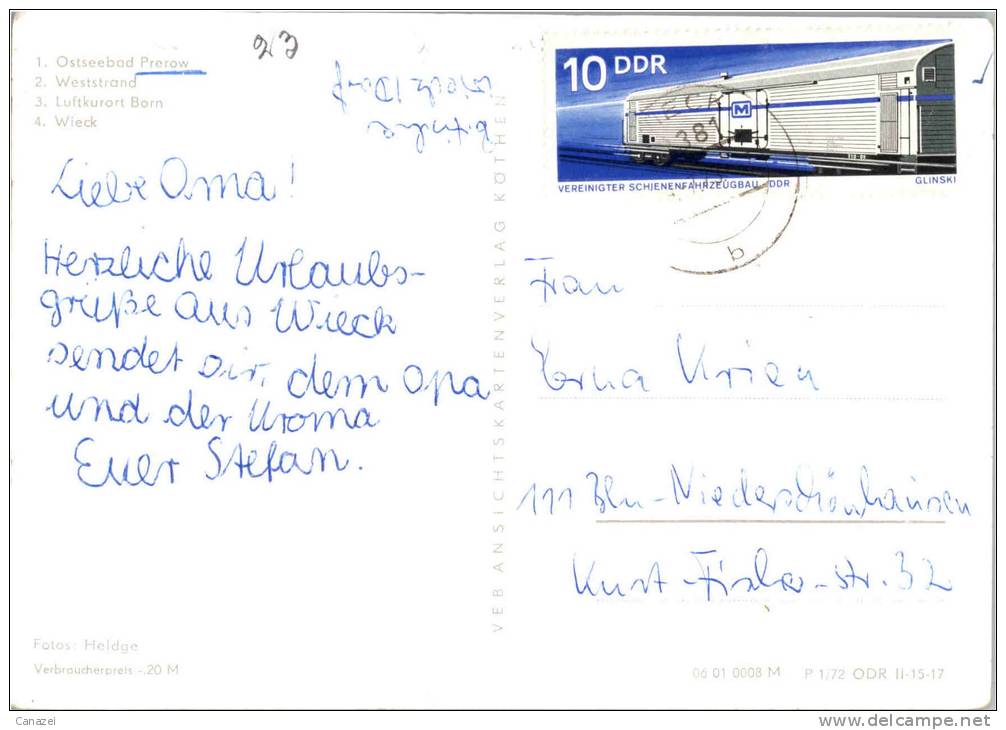 23
1. Ostseebad Prerow
2. Weststrand
3. Luftkurort Born
4. Wieck
10 DDR
M
381
VEREINIGTER SCHIENENFAHRZEUGBAU DDR
GLINSKI
b
Liebe Oma!
Herzliche Urlaubs-
grüße aus Wieck
sendet Dir, dem Opa
und der Uroma
Euer Stefan.
VEB ANSICHTSKARTENVERLAG KÖTHEN
Frau
Erna Krien
111 Bln-Niederschönhausen
Kurt-Fischer-str. 32
Fotos: Heldge
Verbraucherpreis -,20 M
06 01 0008 M P 1/72 ODR II-15-17
Canazei
www.delcampe.net